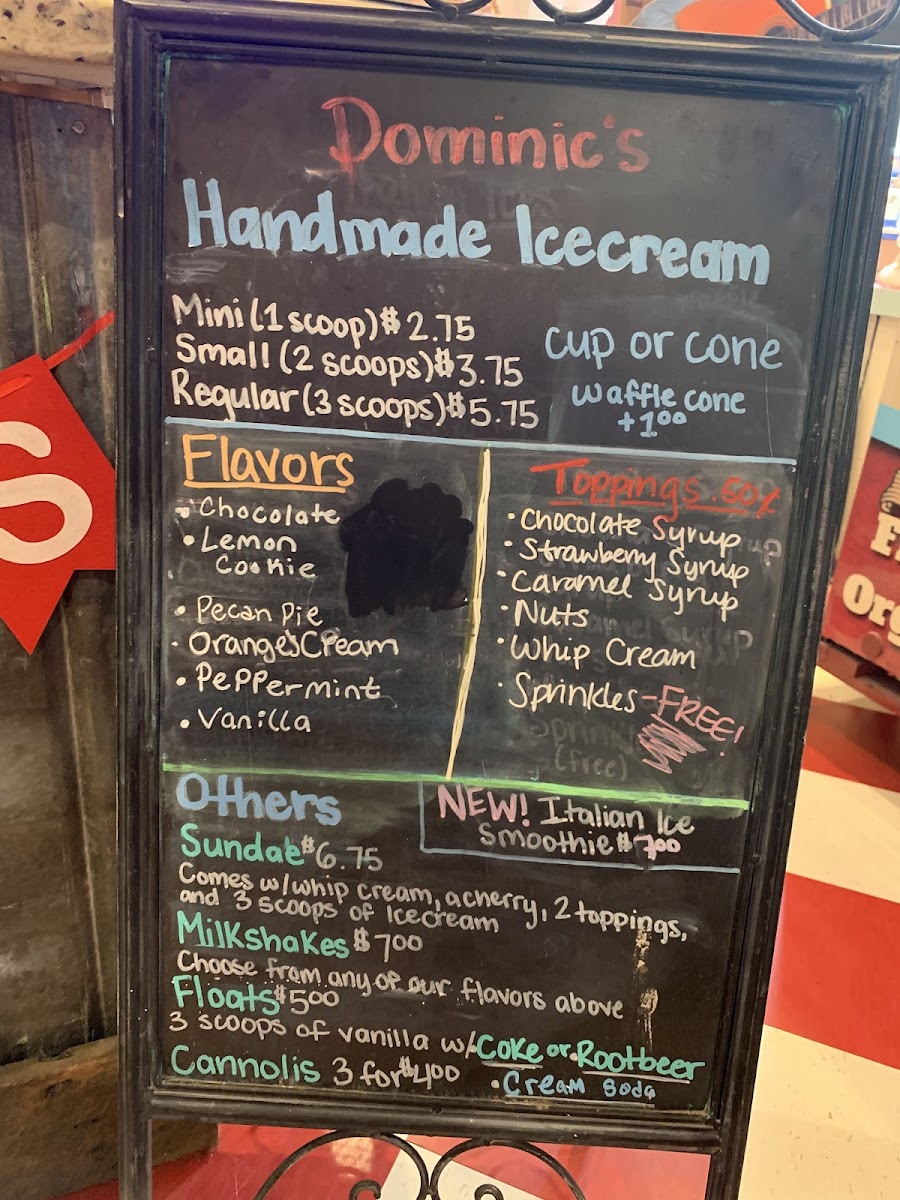 Dominic's
Handmade Icecream
Mini (1 scoop) $2.75
Small (2 scoops) $3.75
Regular (3 scoops) $5.75
cup or cone
waffle cone
+1.00
Flavors
• Chocolate
• Lemon
Cookie
• Pecan Pie
• Oranges Cream
• Peppermint
• Vanilla
Toppings .50
• Chocolate Syrup
• Strawberry Syrup
• Caramel Syrup
• Nuts
• Whip Cream
• Sprinkles - FREE!
Sprinkl
(free)
Others
NEW! Italian Ice
Smoothie $7.00
Sundae $6.75
Comes w/whip cream, a cherry, 2 toppings,
and 3 scoops of Icecream
Milkshakes $7.00
Choose from any of our flavors above
Floats $5.00
3 scoops of vanilla w/ • Coke or • Rootbeer
• Cream Soda
Cannolis 3 for $4.00
S
F
Org